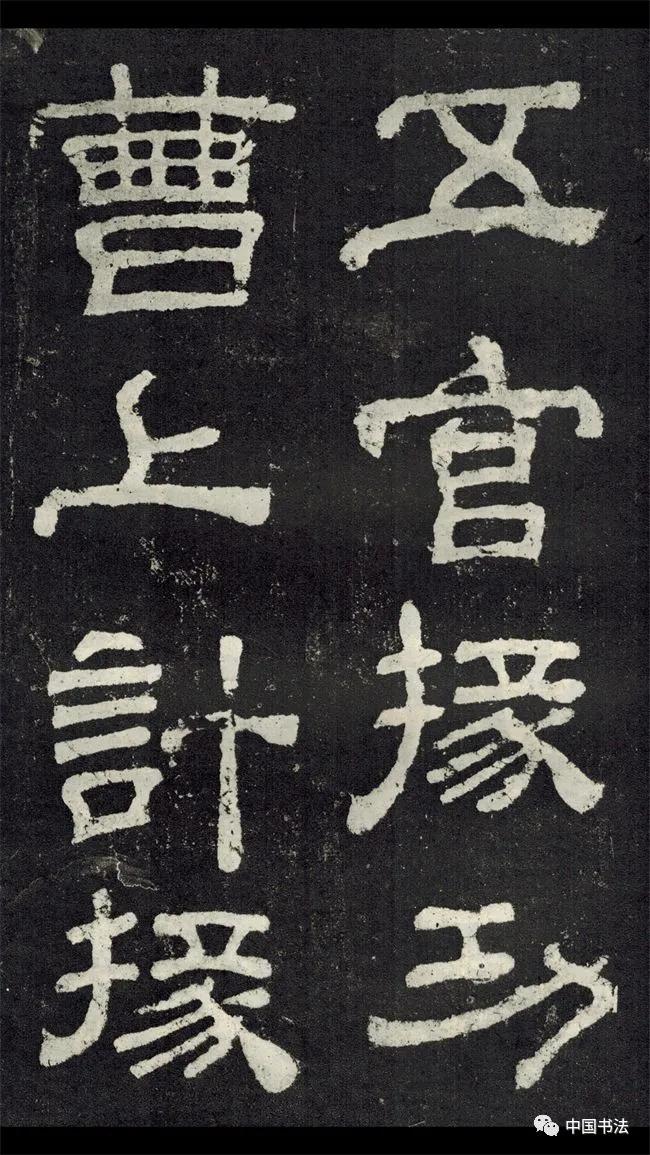 五官掾功
曹上計掾
中国书法